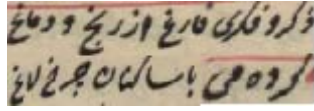 ذکر و فکری فارغ از رنج و دماغ
کرده می با ساکنان چرخ لاغ